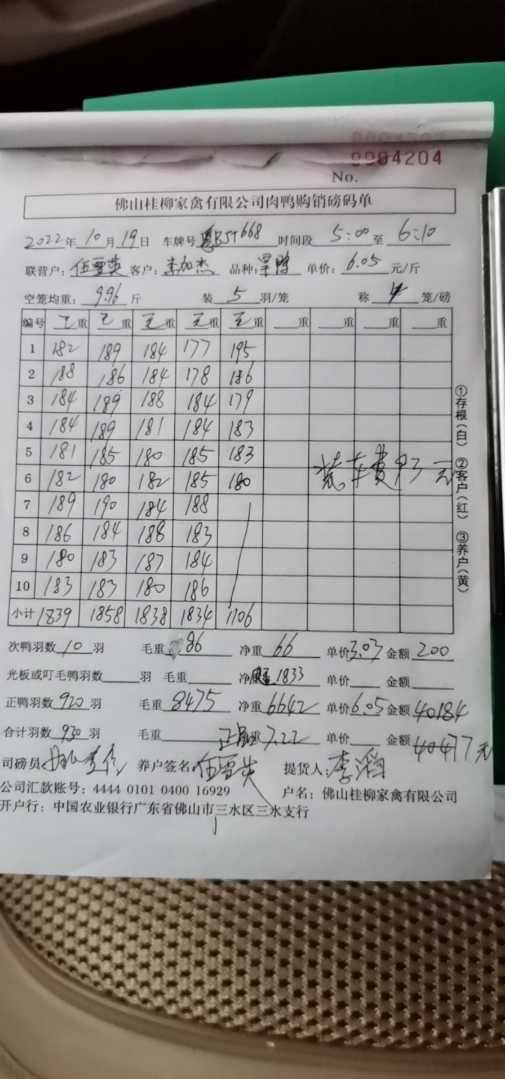 9984204
No.
佛山桂柳家禽有限公司肉鸭购销磅码单
2022年10月19日 车牌号 668 时间段 5:00 至 6:10
联营户: 伍雪英 客户: 李加杰 品种: 单价: 6.05 元/斤
空笼均重: 9.96 斤 装 5 羽/笼 称 4 笼/磅
编号 毛重 毛重 毛重 毛重 毛重 重 重 重 重
1 182 189 184 177 195
2 188 186 184 178 186
3 184 189 188 184 179
4 184 189 181 184 183
5 181 185 180 185 183
6 182 180 182 185 180
7 189 190 184 188
8 186 184 188 183
9 180 183 187 184
10 183 183 180 186
小计 1839 1858 1838 1834 1106
装车费93元
①存根(白) ②客户(红) ③养户(黄)
次鸭羽数 10 羽 毛重 86 净重 66 单价 3.03 金额 200
光板或叮毛鸭羽数 羽 毛重 净重 1833 单价 金额
正鸭羽数 920 羽 毛重 8475 净重 6642 单价 6.05 金额 40184
合计羽数 930 羽 毛重 7.22 单价 金额 40477元
司磅员 养户签名: 伍雪英 提货人: 李滔
公司汇款账号: 4444 0101 0400 16929 户名: 佛山桂柳家禽有限公司
开户行: 中国农业银行广东省佛山市三水区三水支行